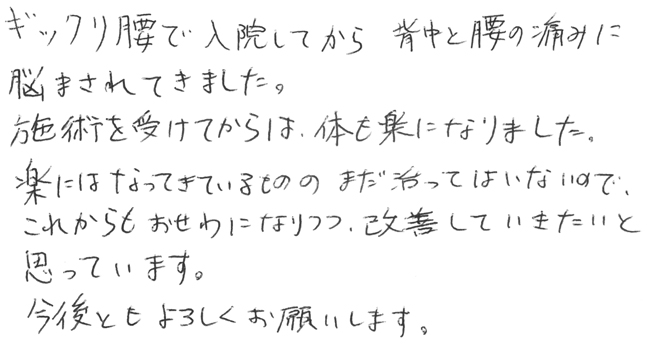 ギックリ腰で入院してから 背中と腰の痛みに
脳まされてきました。
施術を受けてからは、体も楽になりました。
楽にはなってきているものの まだ治ってはいないので、
これからも おせわになりつつ、改善していきたいと
思っています。
今後とも よろしくお願いします。